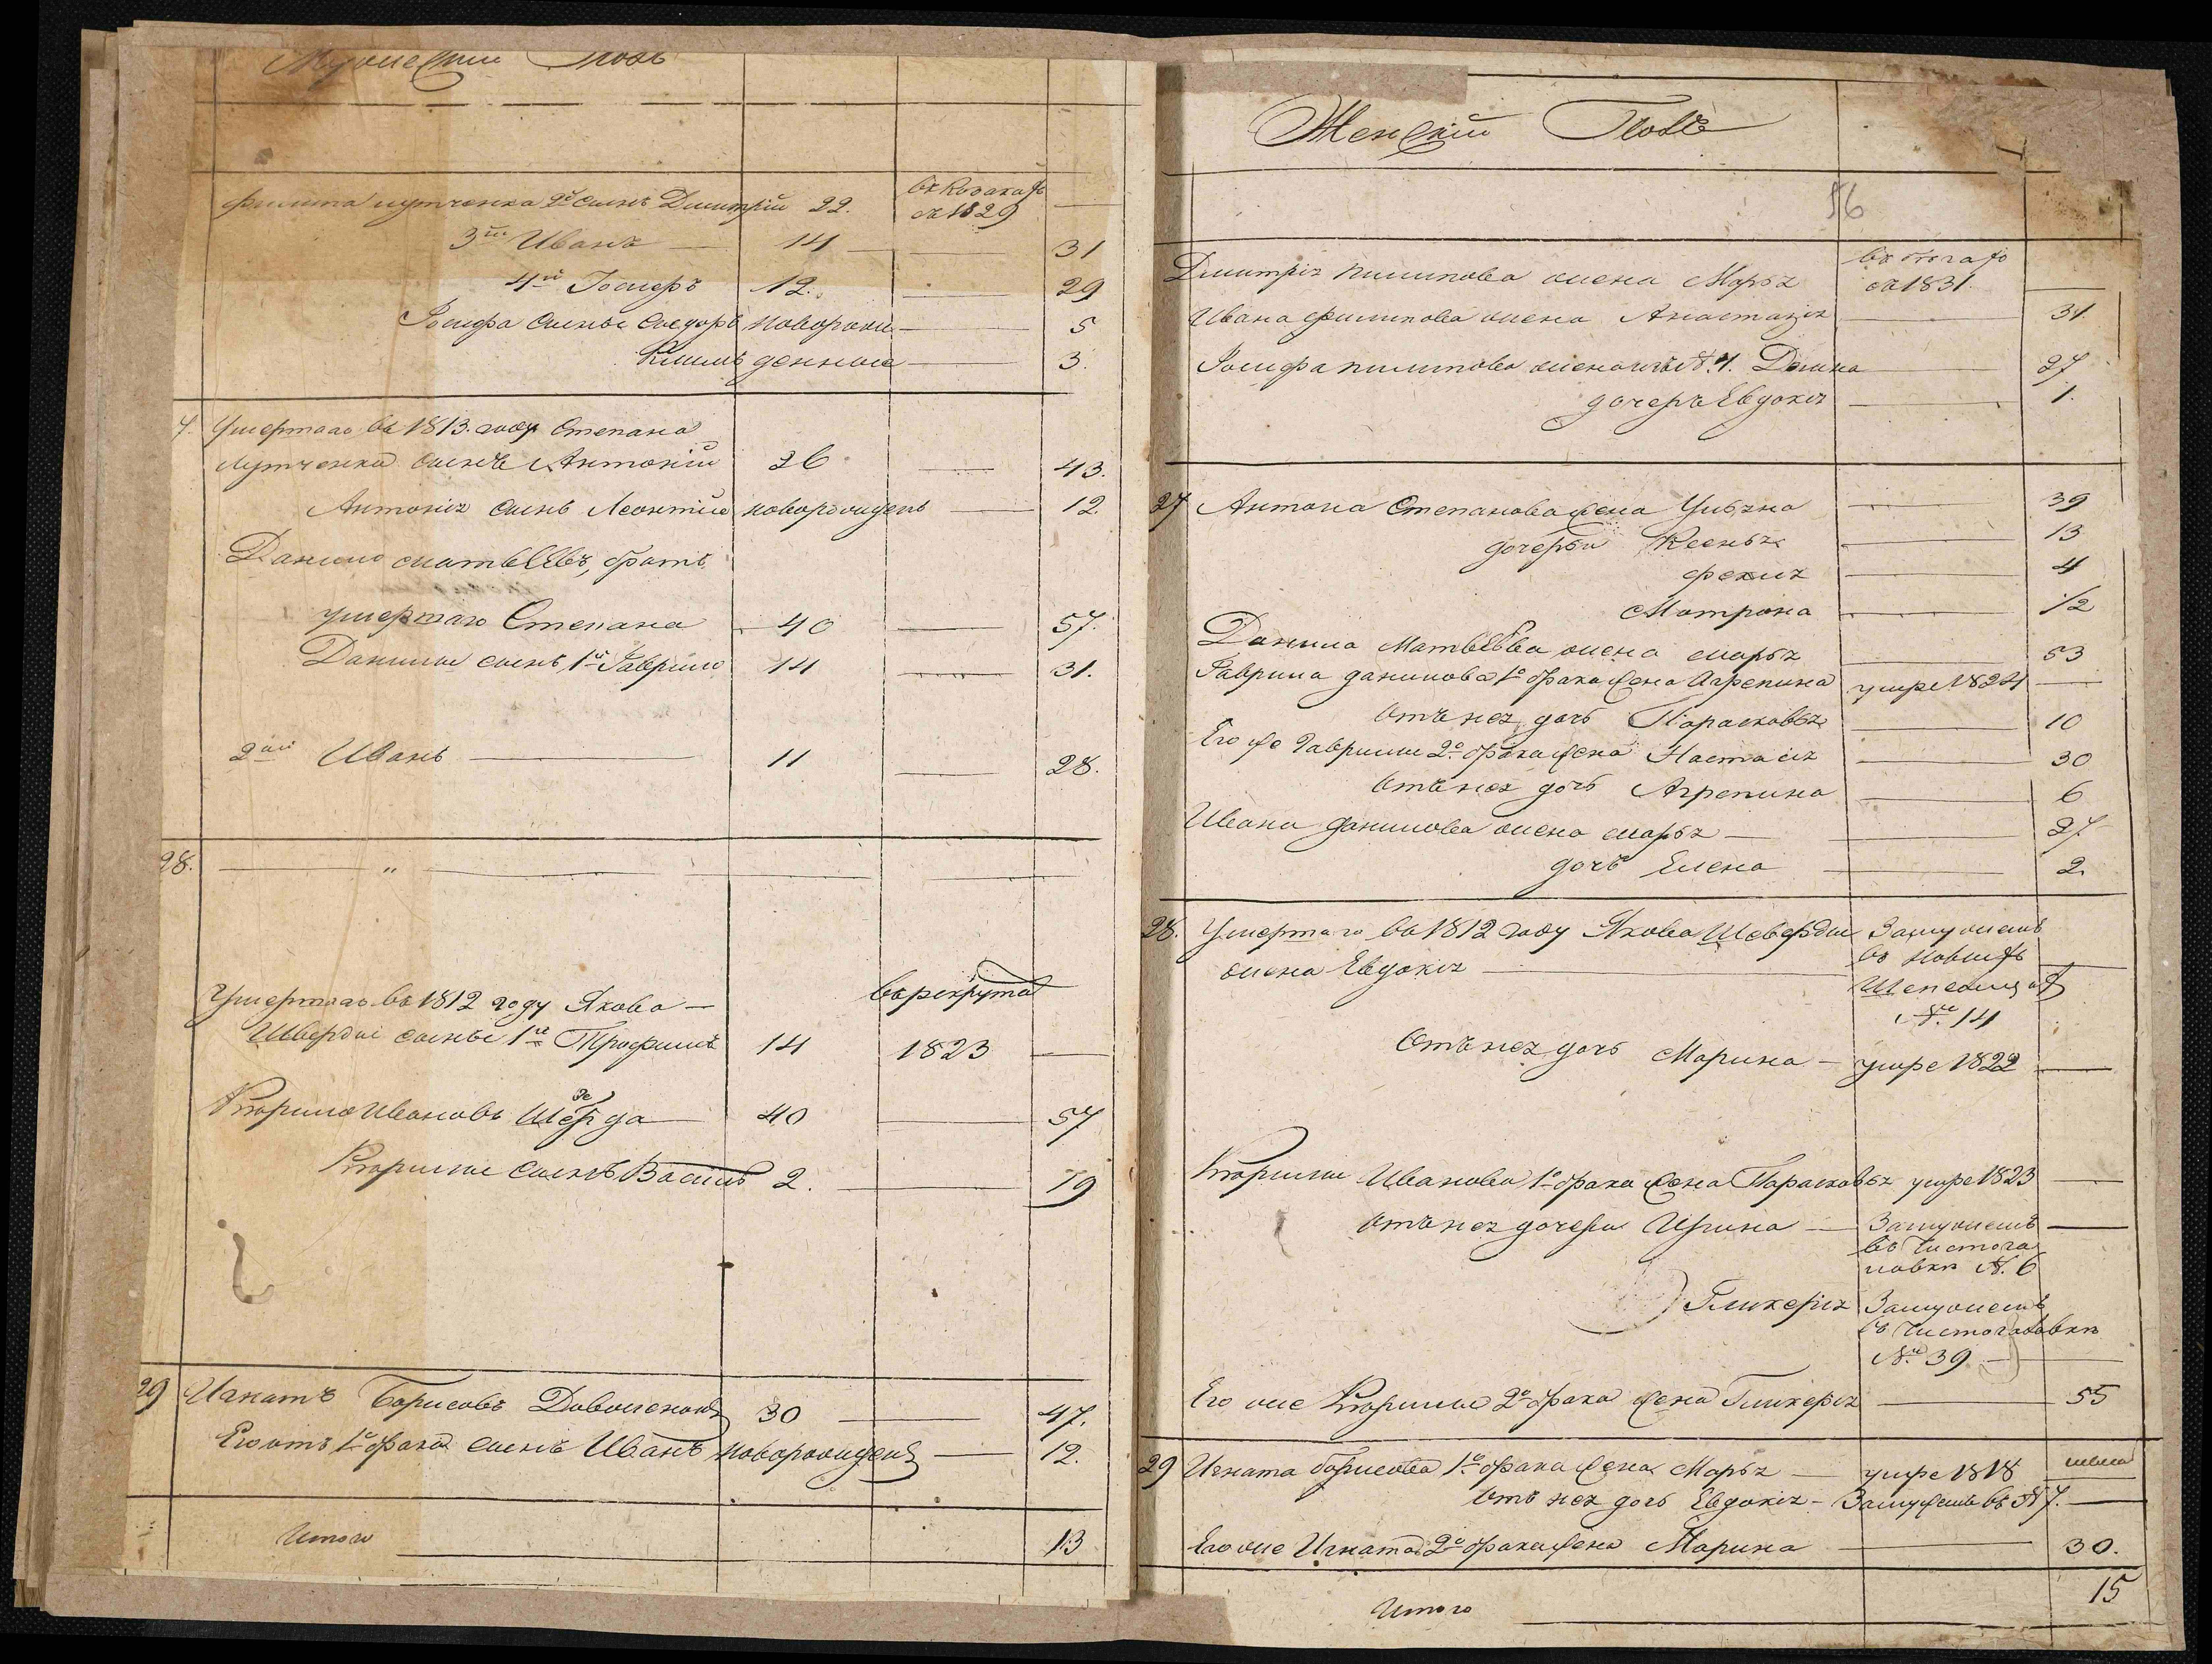 Мужеский Полъ
Филипа Лутченка 2й сынъ Дмитрій 22. въ козакахъ
съ 1829
3ій Иванъ 14 31
4й Іосифъ 12. 29
Іосифа сыны Сидоръ новорож 5
Климъ денные 3.
7. Умершаго въ 1813. году Степана
Лутченка сынъ Антоній 26 43.
Антонія сынъ Леонтій новорожденъ 12
Данило Матвѣевъ, братъ
умершаго Степана 40 57.
Данилы сынъ 1й Гаврило 14 31.
2ій Иванъ 11 28.
28. "
Умершаго въ 1812 году Якова
Шверды сыны 1й Трофимъ 14 въ рекруты
1823
Кирило Ивановъ Шеверда 40 57
Кирилы сынъ Василь 2. 19
29 Игнатъ Борисовъ Довженокъ 30 47.
Его отъ 1о брака сынъ Иванъ новорожденъ 12.
Итого 13
Женскій Полъ
56
Дмитрія Пилипова жена Марья въ бѣгахъ
съ 1831
Ивана Филипова жена Анастазія 31
Іосифа Пилипова жена изъ N. 4. Домна 27
дочеръ Евдокія 1.
27 Антона Степанова жена Ульяна 39
дочеры Ксенья 13
Фекла 4
Матрона 1/2
Данила Матвѣева жена Марья 53
Гаврила Данилова 1о брака жена Агрепина умре 1824
Отъ нея дочь Парасковья 10
Его же Гаврилы 2о брака жена Настасія 30
Отъ нея дочь Агрепина 6
Ивана Данилова жена Марья 27
дочь Елена 2.
28. Умершаго въ 1812 году Якова Шеверды
жена Евдокія
Замужемъ
въ Новыхъ
N. 14
Отъ нея дочь Марина умре 1822
Кирилы Иванова 1о брака жена Парасковья умре 1823
отъ нея дочери Ирина Замужемъ
въ Чистопа
новки N. 6
Гликерія Замужемъ
N. 39
Его же Кирилы 2о брака жена Гликерія 55
29 Игната Борисова 1о брака жена Марья умре 1818
Отъ нея дочь Евдокія Замужемъ въ N 7.
Его же Игната 2о брака жена Марина 30.
Итого 15